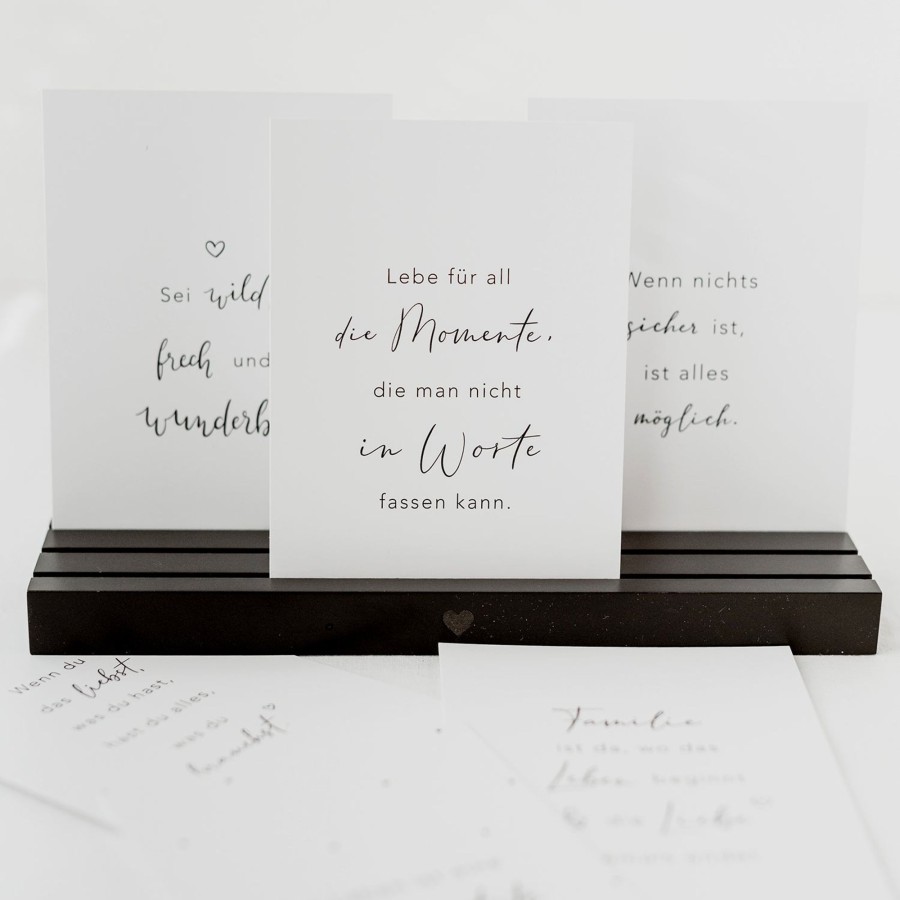 Sei wild
frech und
wunderb
Lebe für all
die Momente,
die man nicht
in Worte
fassen kann.
Wenn nichts
sicher ist,
ist alles
möglich.
Wenn du
das liebst,
was du hast,
hast du alles,
was du
brauchst
Familie
ist da, wo das
Leben beginnt
Liebe